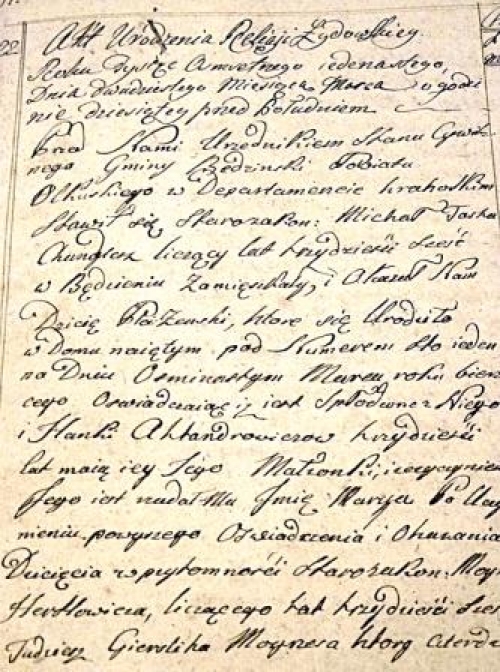 22 Akt Urodzenia Religii Żydowskiey.
Roku Tysiąc Osmsetnego iedenastego,
Dnia Dwudziestego Miesiąca Marca o godzi
nie dziesiątey przed Południem
Przed Nami Urzędnikiem Stanu Cywil
nego Gminy Będzinski Powiatu
Olkuskiego w Departamencie krakoskim
Stawił się Starozakon: Michał
liczący lat trzydzieści sześć
w Będzieniu Zamięszkały, i Okazał Nam
Dziecię Płci Żenski, które się Urodziło
w Domu naiętym pod Numerem sto ieden
na Dniu Osmnastym Marca roku bieżą
cego Oswiadczaiąc iż iest Spłodzone z Niego
i Hanki trzydzieści
lat maią icy Jego Małżonki,
Jego iest nadać Mu Jmię Marya Po Uczy
nieniu powyszego Oswiadczenia i Okazania
Dziecięcia w przytomności Starozakon:
Herslowicza, liczącego lat trzydzieści
Tudziesz Gierslika Moynesa który czterdz